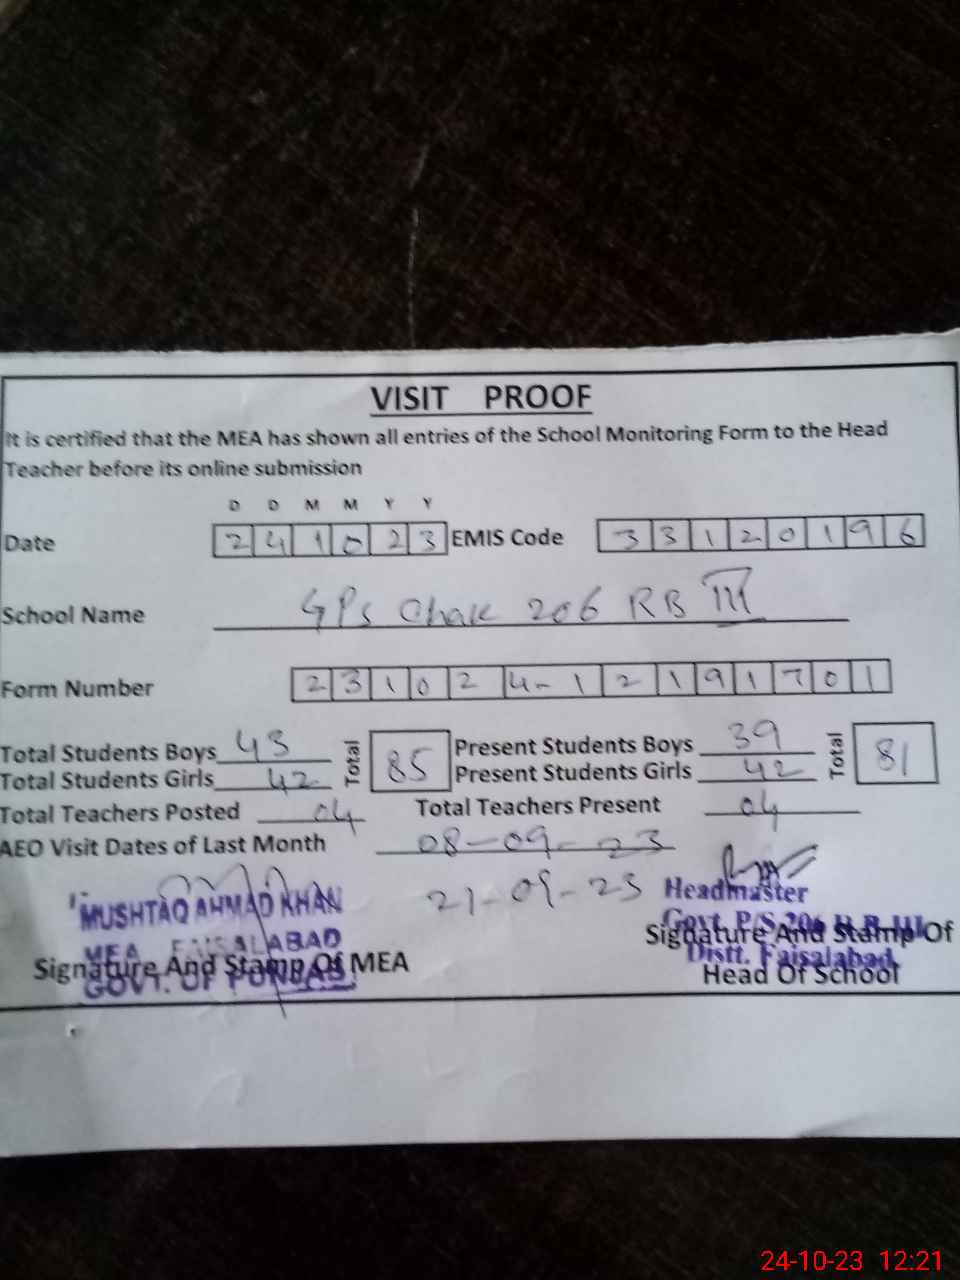 VISIT PROOF
It is certified that the MEA has shown all entries of the School Monitoring Form to the Head
Teacher before its online submission
D D M M Y Y
Date 2 4 1 0 2 3 EMIS Code 3 3 1 2 0 1 9 6
School Name GPS Chak 206 RB III
Form Number 2 3 1 0 2 4-1 2 1 9 1 7 0 1
Total Students Boys 43 Total 85 Present Students Boys 39 Total 81
Total Students Girls 42 Present Students Girls 42
Total Teachers Posted 04 Total Teachers Present 04
AEO Visit Dates of Last Month 08-09-23
21-09-23
MUSHTAQ AHMAD KHAN
MEA FAISALABAD
GOVT. OF PUNJAB
Signature And Stamp Of MEA
Headmaster
Govt. P/S 206 R.B III
Distt. Faisalabad
Signature And Stamp Of
Head Of School
24-10-23 12:21